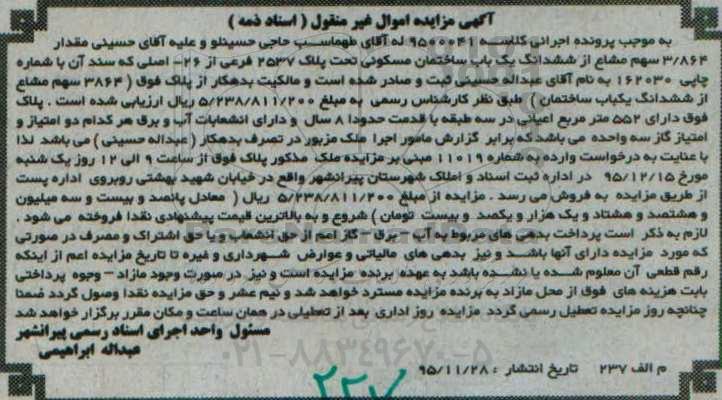 آگهی مزایده اموال غیر منقول ( اسناد ذمه )
به موجب پرونده اجرائی کلاسه ۹۵۰۰۰۴۱ له آقای طهماسب حاجی حسینلو و علیه آقای حسینی مقدار
۳/۸۶۴ سهم مشاع از ششدانگ یک باب ساختمان مسکونی تحت پلاک ۲۵۳۷ فرعی از ۲۶- اصلی که سند آن با شماره
چاپی ۱۶۲۰۳۰ به نام آقای عبداله حسینی ثبت و صادر شده است و مالکیت بدهکار از پلاک فوق ( ۳۸۶۴ سهم مشاع
از ششدانگ یکباب ساختمان ) طبق نظر کارشناس رسمی به مبلغ ۵/۲۳۸/۸۱۱/۲۰۰ ریال ارزیابی شده است . پلاک
فوق دارای ۵۵۲ متر مربع اعیانی در سه طبقه با قدمت حدودا ۸ سال و دارای انشعابات آب و برق هر کدام دو امتیاز و
امتیاز گاز سه واحده می باشد که برابر گزارش مامور اجرا ملک مزبور در تصرف بدهکار ( عبداله حسینی ) می باشد لذا
با عنایت به درخواست وارده به شماره ۱۱۰۱۹ مبنی بر مزایده ملک مذکور پلاک فوق از ساعت ۹ الی ۱۲ روز یک شنبه
مورخ ۹۵/۱۲/۱۵ در اداره ثبت اسناد و املاک شهرستان پیرانشهر واقع در خیابان شهید بهشتی روبروی اداره پست
از طریق مزایده به فروش می رسد . مزایده از مبلغ ۵/۲۳۸/۸۱۱/۲۰۰ ریال ( معادل پانصد و بیست و سه میلیون
و هشتصد و هشتاد و یک هزار و یکصد و بیست تومان ) شروع و به بالاترین قیمت پیشنهادی نقدا فروخته می شود .
لازم به ذکر است پرداخت بدهی های مربوط به آب - برق - گاز اعم از حق انشعاب و یا حق اشتراک و مصرف در صورتی
که مورد مزایده دارای آنها باشد و نیز بدهی های مالیاتی و عوارض شهرداری و غیره تا تاریخ مزایده اعم از اینکه
رقم قطعی آن معلوم شده یا نشده باشد به عهده برنده مزایده است و نیز در صورت وجود مازاد - وجوه پرداختی
بابت هزینه های فوق از محل مازاد به برنده مزایده مسترد خواهد شد و نیم عشر و حق مزایده نقدا وصول گردد ضمنا
چنانچه روز مزایده تعطیل رسمی گردد مزایده روز اداری بعد از تعطیلی در همان ساعت و مکان مقرر برگزار خواهد شد
مسئول واحد اجرای اسناد رسمی پیرانشهر
عبداله ابراهیمی
۰۲۱-۸۸۳۴۹۶۷۰-۵
م الف ۲۳۷ تاریخ انتشار : ۹۵/۱۱/۲۸
۲۳۷